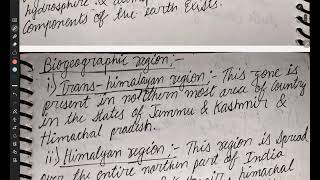 hydrosphere &
components of the earth exists.
Biogeographic region;-
i) Trans-himalayan region;- This zone is
present in northern most area of country
in the states of Jammu & Kashmir &
Himachal pradesh.
ii) Himalyan region;- This region is spread
over the entire northen part of India
himachal